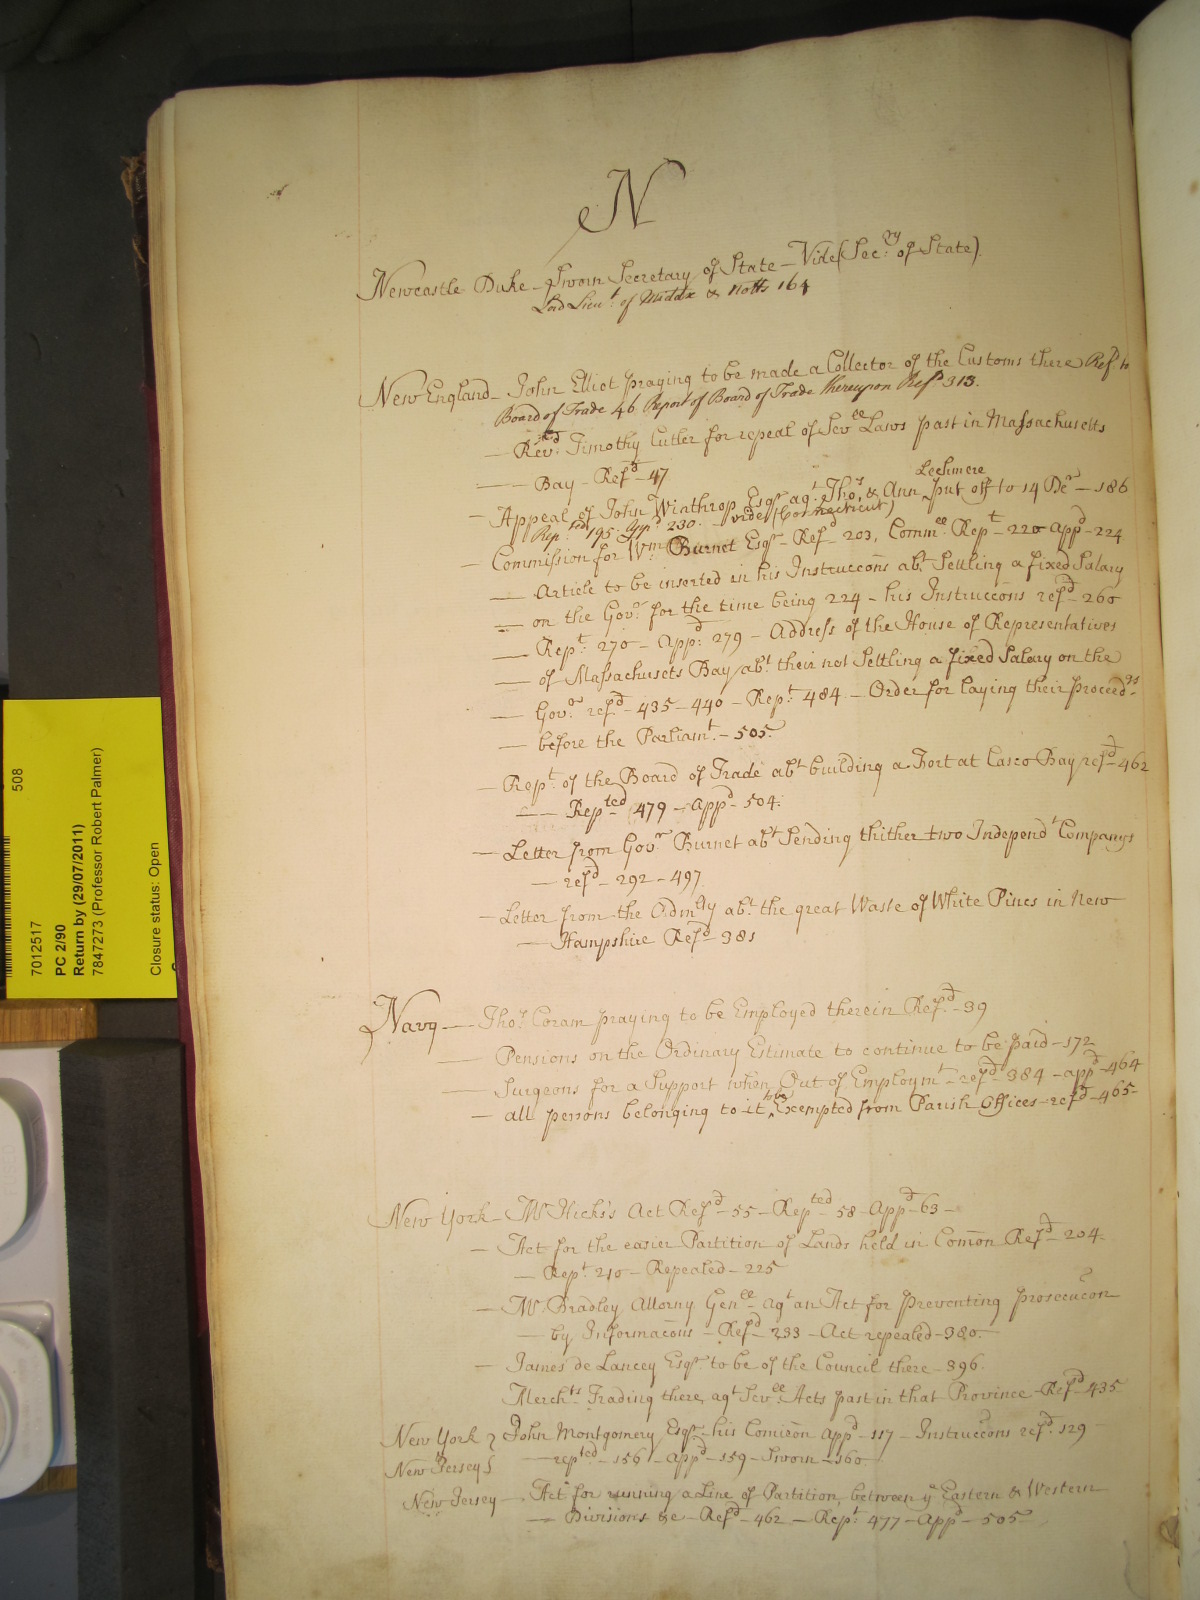 N
Newcastle Duke - Sworn Secretary of State - Vide (Sec:ry of State)
Lord Lieut: of Middx & Notts 164
New England - John Elliot praying to be made a Collector of the Customs there Ref. to
Board of Trade 46 Report of Board of Trade thereupon Refd 313.
— Revd: Timothy Cutler for repeal of Sevll Laws past in Massachusetts
— Bay - Refd - 47
Lechmere
— Appeal of John Winthrop Esqr agt Thos & Ann put off to 14 Decr - 186
Rep:ted 195. Appd 230. - vide (Connecticut)
— Commission for Wm Burnet Esqr - Refd 203, Commee Rept - 220 appd - 224
— Article to be inserted in his Instruccons abt Settling a fixed Salary
— on the Govr for the time being 224 - his Instruccons refd - 260
— Rept: 270 - Appd: 279 - Address of the House of Representatives
— of Massachusets Bay abt their not Settling a fixed Salary on the
— Govr refd - 435 - 440 - Rept 484 - Order for laying their proceedgs
— before the Parliamt. - 505.
— Rept of the Board of Trade abt building a Fort at Casco Bay refd - 462
— Repted 479 - appd - 504.
— Letter from Govr Burnet abt Sending thither two Independt Companys
— refd - 292 - 497.
— Letter from the Admlty abt the great Waste of White Pines in New
— Hampshire Refd - 381
Navy — Thos Coram praying to be Employed therein Refd - 39
— Pensions on the Ordinary Estimate to continue to be paid - 172
— Surgeons for a Support when Out of Employmt - refd - 384 - appd - 464
— all persons belonging to it ^to be Exempted from Parish Offices - refd - 465 -
New York - Mr Hicks's Act Refd - 55 - Repted 58 - Appd - 63 -
— Act for the easier Partition of Lands held in Comon Refd - 204.
— Rept 210 - Repealed - 225
— Mr Bradley Attorny Genll agt an Act for preventing prosecucon
— by Informacons - Refd - 233 - Act repealed - 380 -
— James de Lancey Esqr to be of the Council there - 396.
Merchts Trading there, agt Sevll Acts past in that Province - Refd - 435
New York } John Montgomery Esqr his Comicon appd - 117 - Instruccons refd - 129 -
New Jersey } — repted - 156 - appd - 159 - Sworn - 160
New Jersey — Act for running a Line of Partition, between ye Eastern & Western
— Divisions &c - Refd - 462 - Rept: 477 - Appd - 505
508
7012517
PC 2/90
Return by (29/07/2011)
7847273 (Professor Robert Palmer)
Closure status: Open